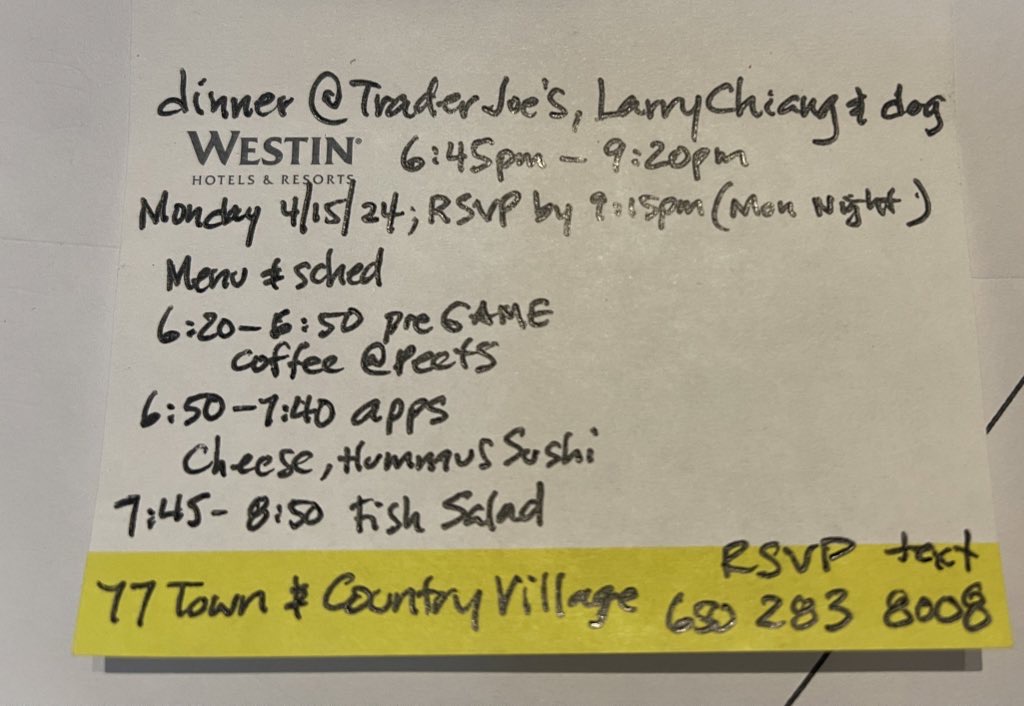 dinner @ Trader Joe's, Larry Chiang & dog
WESTIN®
HOTELS & RESORTS
6:45pm - 9:20pm
Monday 4/15/24; RSVP by 9:15pm (Mon Night)
Menu & sched
6:20-6:50 preGAME
coffee @Peets
6:50-7:40 apps
Cheese, Hummus Sushi
7:45-8:50 Fish Salad
RSVP text
77 Town & Country Village
650 283 8008